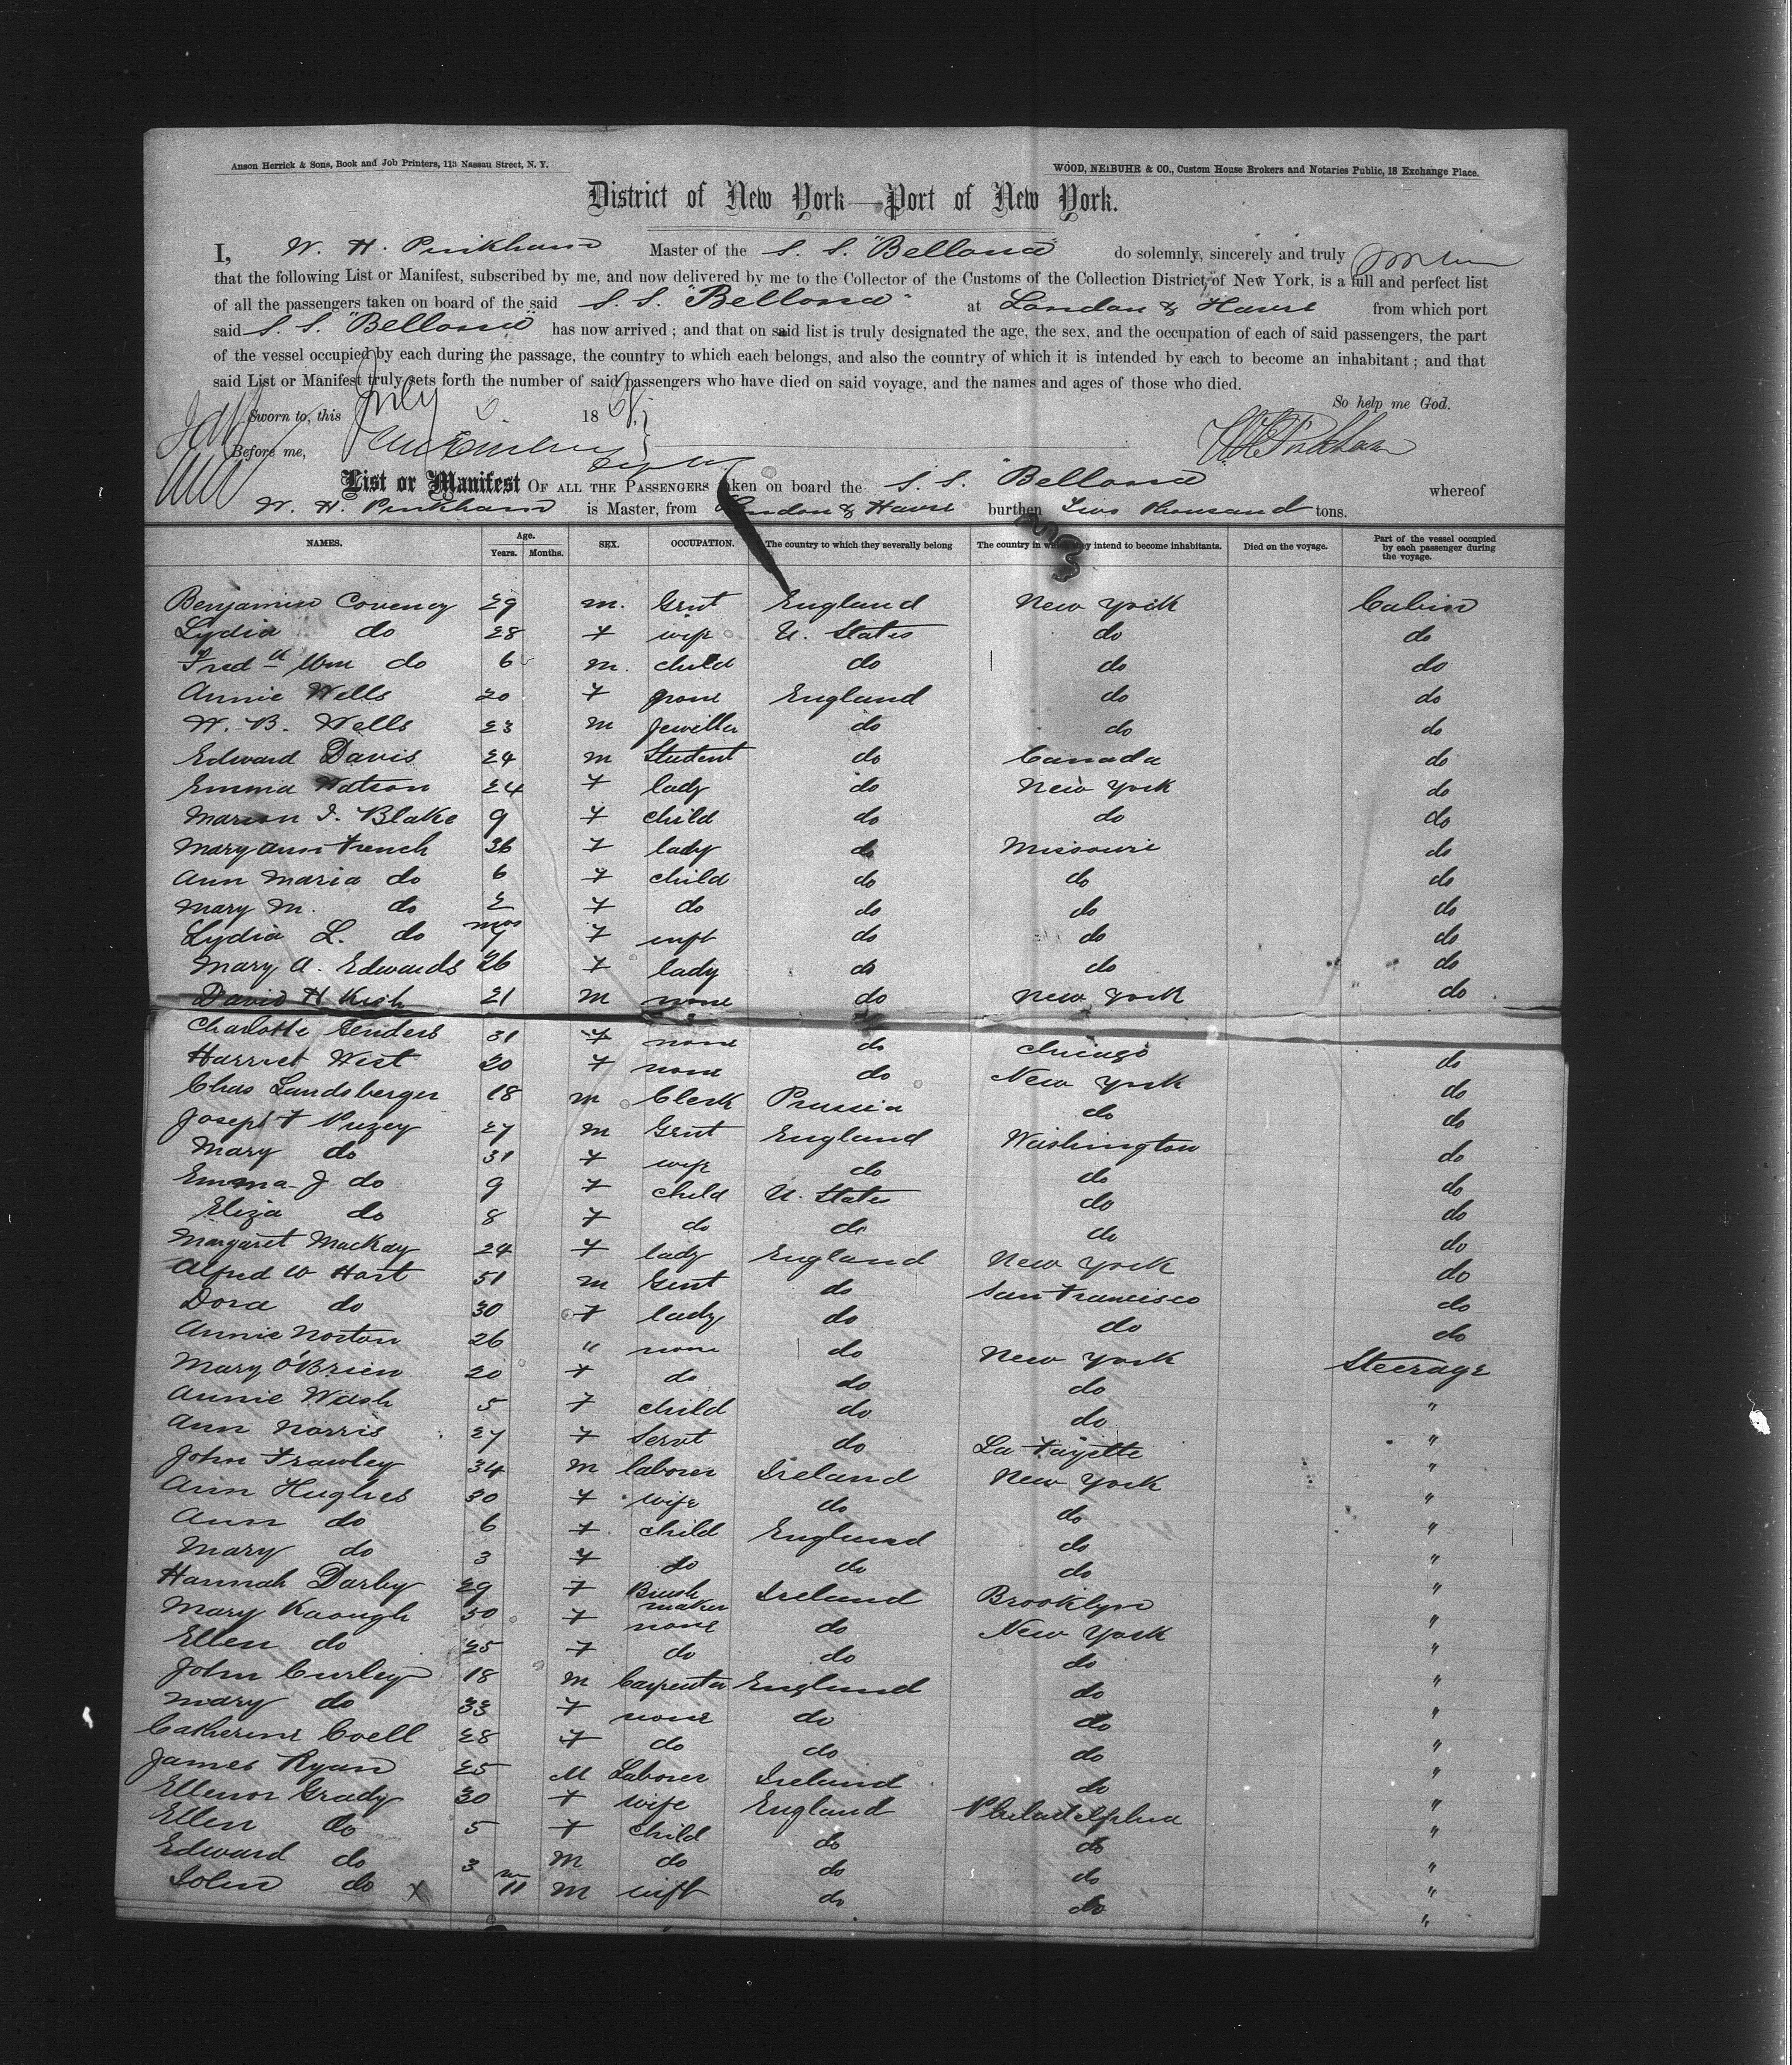 Anson Herrick & Sons, Book and Job Printers, 113 Nassau Street, N. Y.
WOOD, NEIBUHR & CO., Custom House Brokers and Notaries Public, 18 Exchange Place.
District of New York—Port of New York.
I, W. H. Pinkham Master of the S. S. "Bellona" do solemnly, sincerely and truly
that the following List or Manifest, subscribed by me, and now delivered by me to the Collector of the Customs of the Collection District of New York, is a full and perfect list
of all the passengers taken on board of the said S. S. "Bellona" at London & Havre from which port
said S. S. "Bellona" has now arrived; and that on said list is truly designated the age, the sex, and the occupation of each of said passengers, the part
of the vessel occupied by each during the passage, the country to which each belongs, and also the country of which it is intended by each to become an inhabitant; and that
said List or Manifest truly sets forth the number of said passengers who have died on said voyage, and the names and ages of those who died.
So help me God.
Sworn to, this July 6. 1868
Before me, W H Pinkham
List or Manifest OF ALL THE PASSENGERS taken on board the S. S. "Bellona" whereof
W. H. Pinkham is Master, from London & Havre burthen Two thousand tons.
NAMES. Age. Years. Months. SEX. OCCUPATION. The country to which they severally belong The country in which they intend to become inhabitants. Died on the voyage. Part of the vessel occupied by each passenger during the voyage.
Benjamin Coveney 29 m. Gent England New York Cabin
Lydia do 28 f wife U. States do do
Fredk Wm do 6 m. child do do do
Annie Wells 20 f none England do do
W. B. Wells 23 m Jeweller do do do
Edward Davis 24 m Student do Canada do
Emma Watson 24 f lady do New York do
Marion I. Blake 9 f child do do do
Mary Ann French 36 f lady do Missouri do
Ann Maria do 6 f child do do do
Mary M. do 2 f do do do do
Lydia L. do mos 7 f inft do do do
Mary A. Edwards 26 f lady do do do
David H Kish 21 m none do New York do
Charlotte Senders 31 f none do Chicago do
Harriet West 20 f none do New York do
Chas Landsberger 18 m Clerk Prussia do do
Joseph F Puzey 27 m Gent England Washington do
Mary do 31 f wife do do do
Emma J do 9 f child U. States do do
Eliza do 8 f do do do do
Margaret Mackay 24 f lady England New York do
Alfred W Hart 51 m Gent do San Francisco do
Dora do 30 f lady do do do
Annie Norton 26 " none do New York Steerage
Mary O'Brien 20 f do do do "
Annie Wash 5 f child do do "
Ann Norris 27 f Servt do La Fayette "
John Frawley 34 m laborer Ireland New York "
Ann Hughes 30 f wife do do "
Ann do 6 f child England do "
Mary do 3 f do do do "
Hannah Darby 29 f Brush maker Ireland Brooklyn "
Mary Kaough 50 f none do New York "
Ellen do 25 f do do do "
John Curley 18 m Carpenter England do "
Mary do 33 f none do do "
Catherine Coell 28 f do do do "
James Ryan 25 M Laborer Ireland do "
Ellenor Grady 30 f wife England Philadelphia "
Ellen do 5 f child do do "
Edward do 3 m do do do "
John do x m 11 m inft do do "